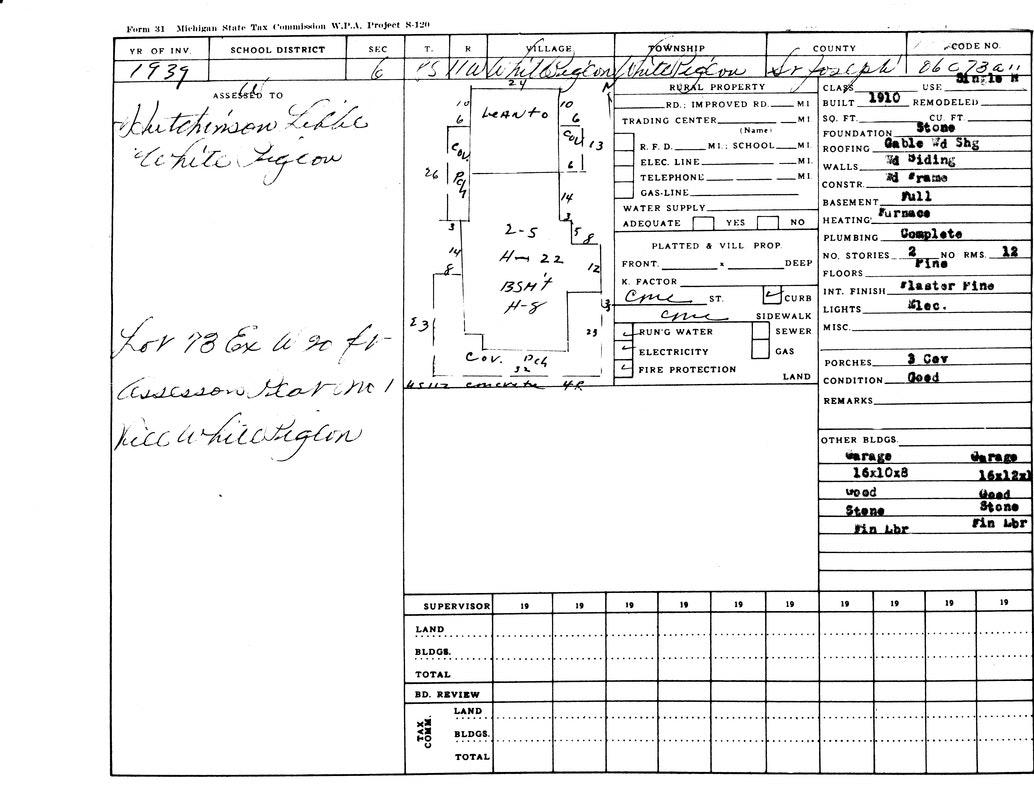 Form 31 Michigan State Tax Commission W.P.A. Project S-120
YR OF INV. SCHOOL DISTRICT SEC T. R VILLAGE TOWNSHIP COUNTY CODE NO.
1939 6 11W White Pigeon White Pigeon St Joseph 06C73a
ASSESSED TO
Hutchinson Libbie
White Pigeon
Lot 73 Ex W 20 ft
Assessors Plat No 1
Vill White Pigeon
24
LeANto
10
6
Cov.
Pch
26
10
6
Cov
13
6
14
3
3
5
8
14
8
12
2-5
H-22
BSM't
H-8
23
3
23
Cov. Pch
32
US 112 concrete 4R
RURAL PROPERTY
RD.; IMPROVED RD. MI.
TRADING CENTER MI.
(Name)
R. F. D. MI.; SCHOOL MI.
ELEC. LINE MI.
TELEPHONE MI.
GAS-LINE
WATER SUPPLY
ADEQUATE YES NO
PLATTED & VILL PROP.
FRONT. x DEEP
K. FACTOR
cmc ST. CURB
cmc SIDEWALK
RUN'G WATER SEWER
ELECTRICITY GAS
FIRE PROTECTION
LAND
CLASS USE Single H
BUILT 1910 REMODELED
SQ. FT. CU. FT.
FOUNDATION Stone
ROOFING Gable Wd Shg
WALLS Wd Siding
CONSTR. Wd Frame
BASEMENT Full
HEATING Furnace
PLUMBING Complete
NO. STORIES 2 NO RMS. 12
FLOORS Pine
INT. FINISH Plaster Pine
LIGHTS Elec.
MISC.
PORCHES 3 Cov
CONDITION Good
REMARKS
OTHER BLDGS.
Garage Garage
16x10x8 16x12x
Good Good
Stone Stone
Fin Lbr Fin Lbr
SUPERVISOR 19 19 19 19 19 19 19 19 19
LAND
BLDGS.
TOTAL
BD. REVIEW
TAX COMM.
LAND
BLDGS.
TOTAL